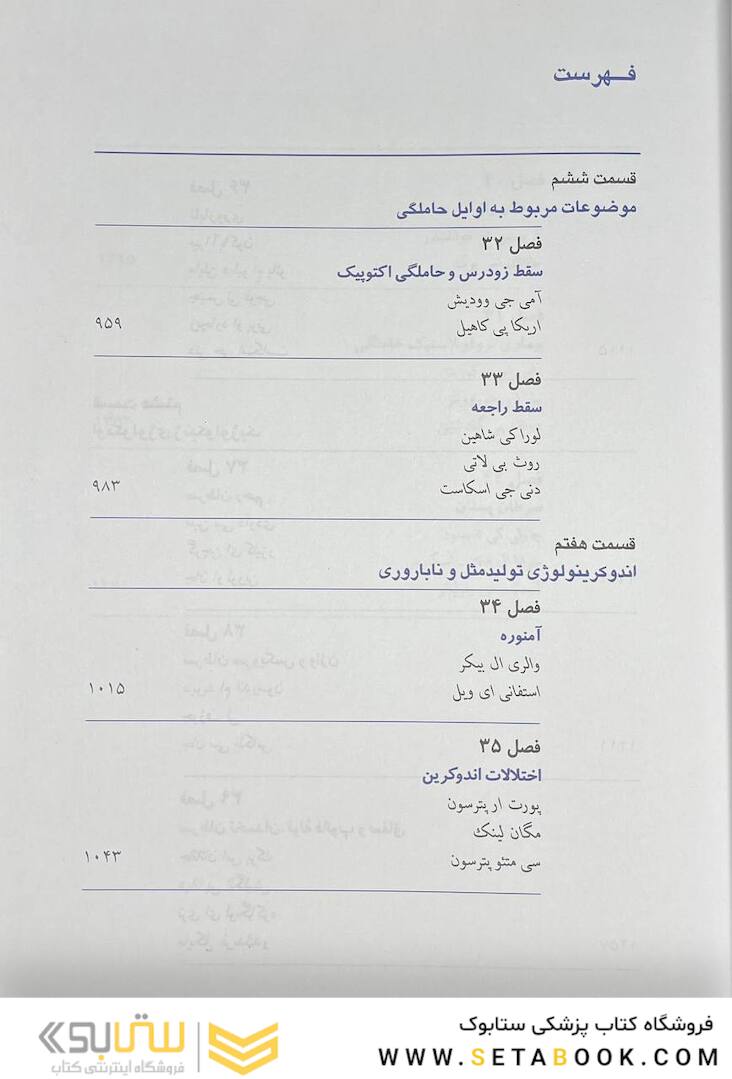 فهرست
قسمت ششم
موضوعات مربوط به اوایل حاملگی
فصل ۳۲
سقط زودرس و حاملگی اکتوپیک
آمی جی وودیش
اریکا پی کاهیل
۹۵۹
فصل ۳۳
سقط راجعه
لورا کی شاهین
روث بی لاتی
دنی جی اسکاست
۹۸۳
قسمت هفتم
اندوکرینولوژی تولیدمثل و ناباروری
فصل ۳۴
آمنوره
والری ال بیکر
استفانی ای ویل
۱۰۱۵
فصل ۳۵
اختلالات اندوکرین
پورت ار پترسون
مگان لینک
سی متئو پترسون
۱۰۴۳
فروشگاه کتاب پزشکی ستابوک
WWW.SETABOOK.COM
ستابوک
فروشگاه اینترنتی کتاب